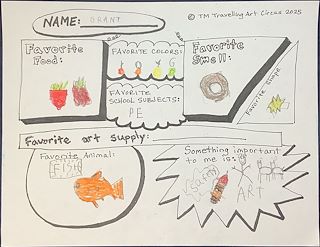 NAME: GRANT
© TM Travelling Art Circus 2025
Favorite Food:
FAVORITE COLORS:
R O Y G
Favorite Smell:
FAVORITE SCHOOL SUBJECTS:
PE
Favorite Shape
Favorite art supply:
Favorite Animal:
FISH
Something important to me is:
ART